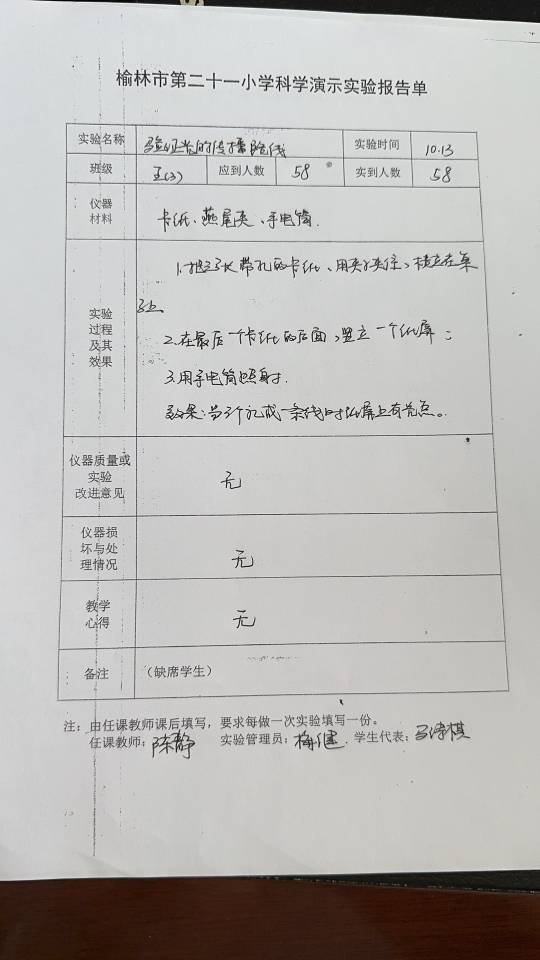 榆林市第二十一小学科学演示实验报告单
实验名称 验证光的传播路线 实验时间 10.13
班级 五(3) 应到人数 58 实到人数 58
仪器材料 卡纸、燕尾夹、手电筒.
实验过程及其效果
1.把3张带孔的卡纸、用夹子夹住,横立在桌
子上.
2.在最后一个卡纸的后面,竖立一个纸屏;
3.用手电筒照射.
效果:当3个孔成一条线时纸屏上有亮点。
仪器质量或实验改进意见 无
仪器损坏与处理情况 无
教学心得 无
备注 (缺席学生)
注:由任课教师课后填写,要求每做一次实验填写一份。
任课教师:陈静 实验管理员:梅健. 学生代表: